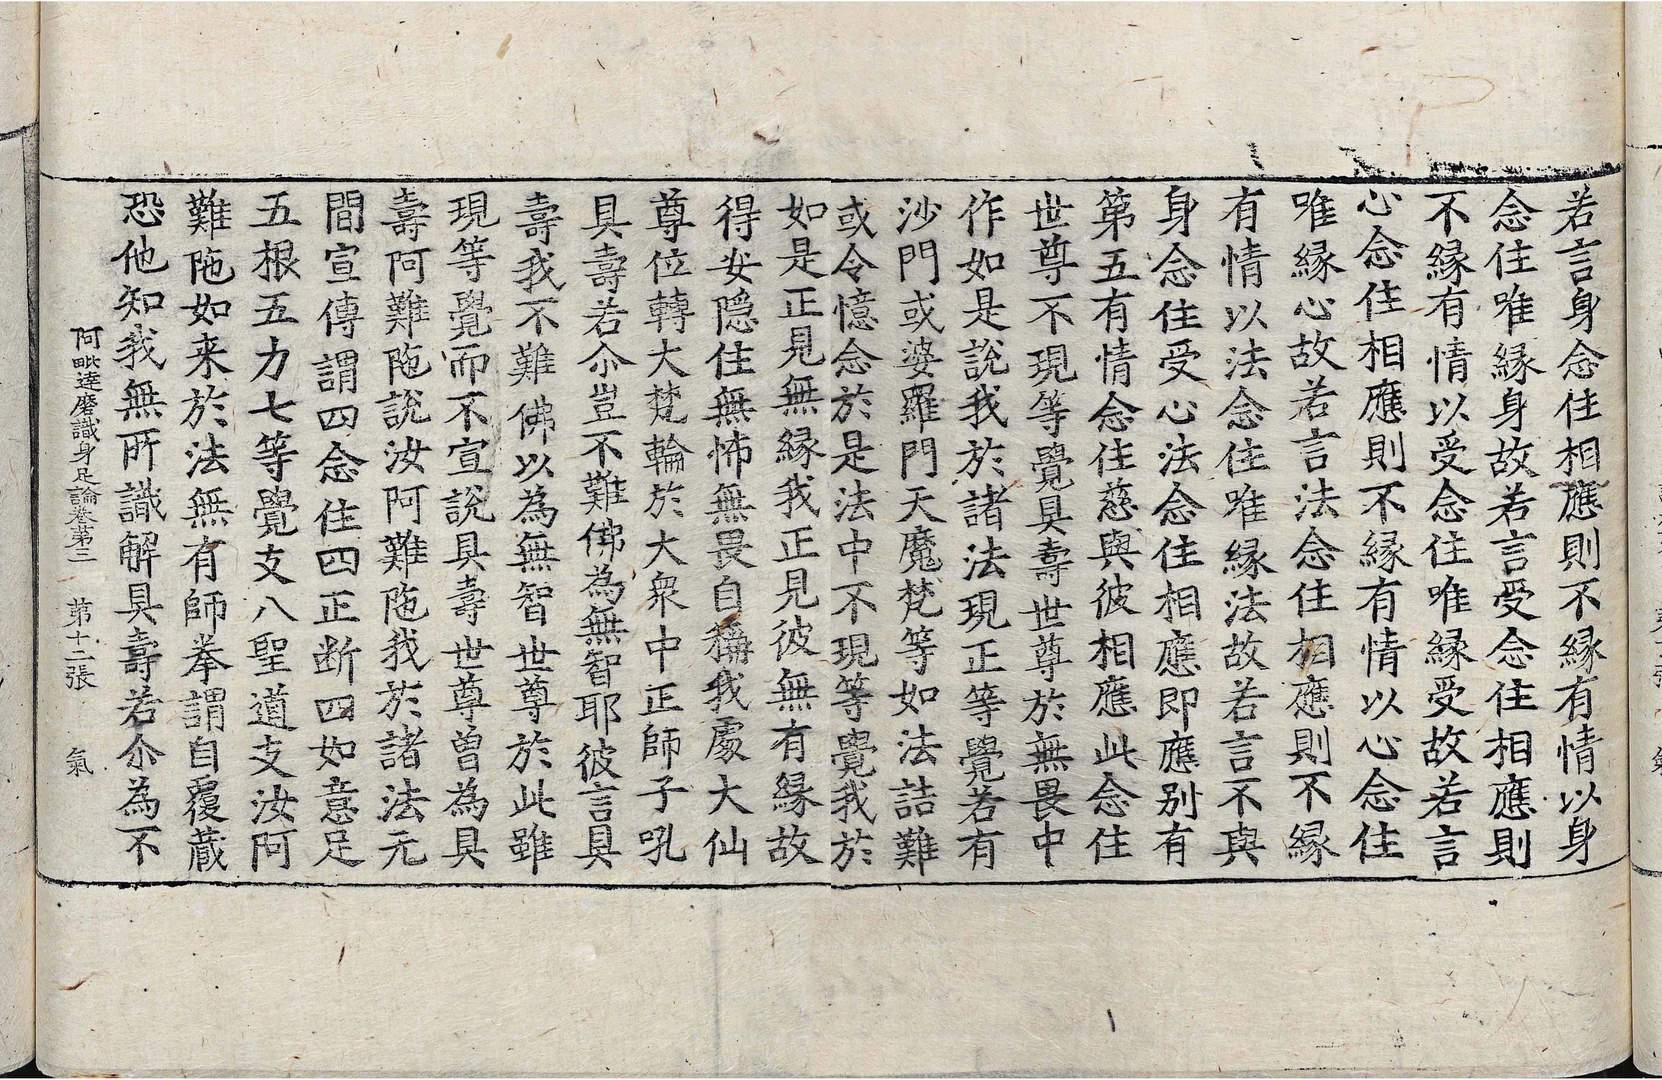 若言身念住相應則不緣有情以身
念住唯緣身故若言受念住相應則
不緣有情以受念住唯緣受故若言
心念住相應則不緣有情以心念住
唯緣心故若言法念住相應則不緣
有情以法念住唯緣法故若言不與
身念住受心法念住相應即應別有
第五有情念住慈與彼相應此念住
世尊不現等覺具壽世尊於無畏中
作如是說我於諸法現正等覺若有
沙門或婆羅門天魔梵等如法詰難
或令憶念於是法中不現等覺我於
如是正見無緣我正見彼無有緣故
得安隱住無怖無畏自稱我處大仙
尊位轉大梵輪於大衆中正師子吼
具壽若尒豈不難佛為無智耶彼言具
壽我不難佛以為無智世尊於此雖
現等覺而不宣說具壽世尊曾為具
壽阿難陁說汝阿難陁我於諸法元
間宣傳謂四念住四正断四如意足
五根五力七等覺支八聖道支汝阿
難陁如来於法無有師拳謂自覆藏
恐他知我無所識解具壽若尒為不
阿毗達磨識身足論卷第三 第十二張 氣